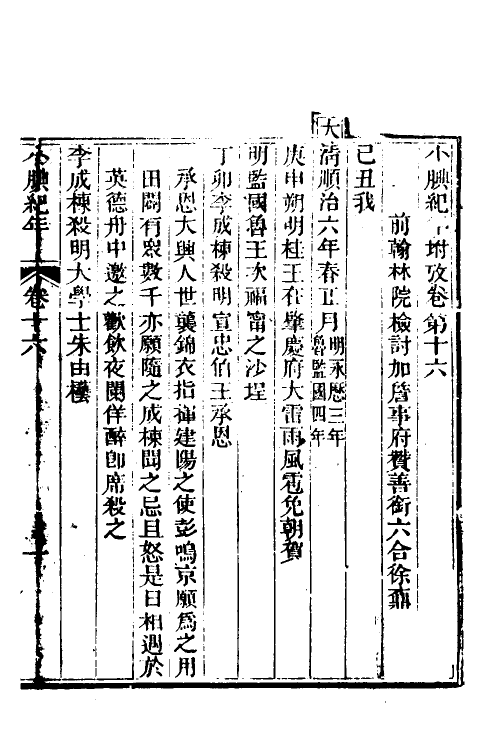 小腆紀年附攷卷第十六
前翰林院檢討加詹事府贊善銜六合徐鼒
己丑我
大清順治六年春正月明永歷三年魯監國四年
庚申朔明桂王在肇慶府大雷雨風雹免朝賀
明監國魯王次福甯之沙埕
丁卯李成棟殺明宣忠伯王承恩
承恩大興人世襲錦衣指揮建陽之使彭鳴京願爲之用
田闢有衆數千亦願隨之成棟聞之忌且怒是日相遇於
英德舟中邀之歡飲夜闌佯醉卽席殺之
李成棟殺明大學士朱由𣚴
小腆紀年
卷十六